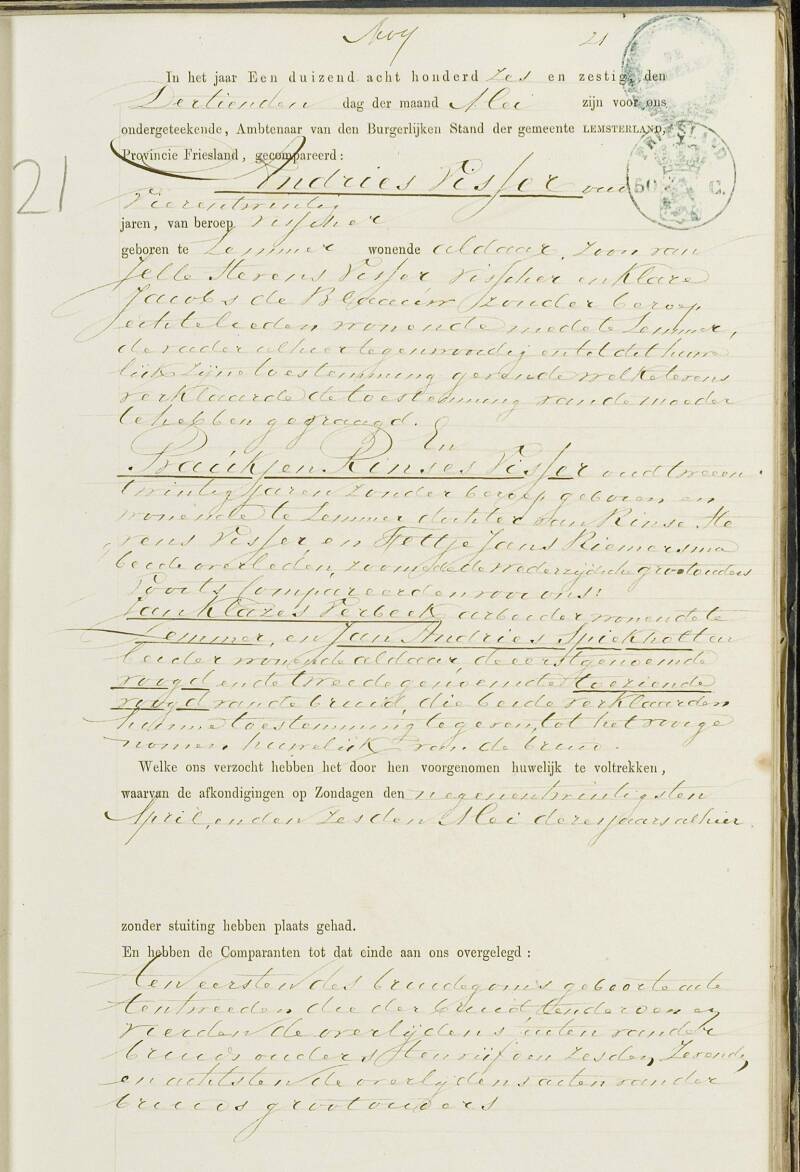 21
21
In het jaar Een duizend acht honderd zes en zestig, den
Dertienden dag der maand Mei zijn voor ons
ondergeteekende, Ambtenaar van den Burgerlijken Stand der gemeente LEMSTERLAND,
Provincie Friesland, gecompareerd:
Andries Visser oud
Vierentwintig
jaren, van beroep visscher
geboren te Lemmer wonende aldaar, zoon van
Jelle Stevens Visser visscher en Klare
Jacobs de Blaauw zonder beroep
echtelieden wonende mede te Lemmer,
de vader alhier tegenwoordig en tot dit huwe
lijk zijne toestemming gevende welke tevens
verklaarde de toestemming van de moeder
te hebben gevraagd.
En
Baukjen Rinses Visser oud tweeen
twintig jaren zonder beroep geboren en
wonende te Lemmer dochter van Rinse Ste
vens Visser, en Jans Riemersma
beide overleden, zoomede de wederzijdsche grootouders
Voorts Compareerden voor ons:
Jan Klazes Verbeek, arbeider, wonende te
Lemmer, en Jan Andries Spiekholt ar
beider wonende aldaar, de eerstgenoemde
voogd en de tweede genoemde toeziende
voogd van de bruid, die beide verklaarden
hunne toestemming te geven, tot het voorge
nomen huwelijk van de bruid.
Welke ons verzocht hebben het door hen voorgenomen huwelijk te voltrekken,
waarvan de afkondigingen op Zondagen den negenentwintigsten
April, en den zesden Mei dezes jaars alhier
zonder stuiting hebben plaats gehad.
En hebben de Comparanten tot dat einde aan ons overgelegd:
Ten eersten des bruidegoms geboorte acte
ten tweeden die der bruid ten derden en
vierden de overlijdens acten van der
bruids ouders ten vijfden zesden, zevenden,
en achtsten de overlijdens acten van der
bruids grootouders
FRIESLAND
50 C.